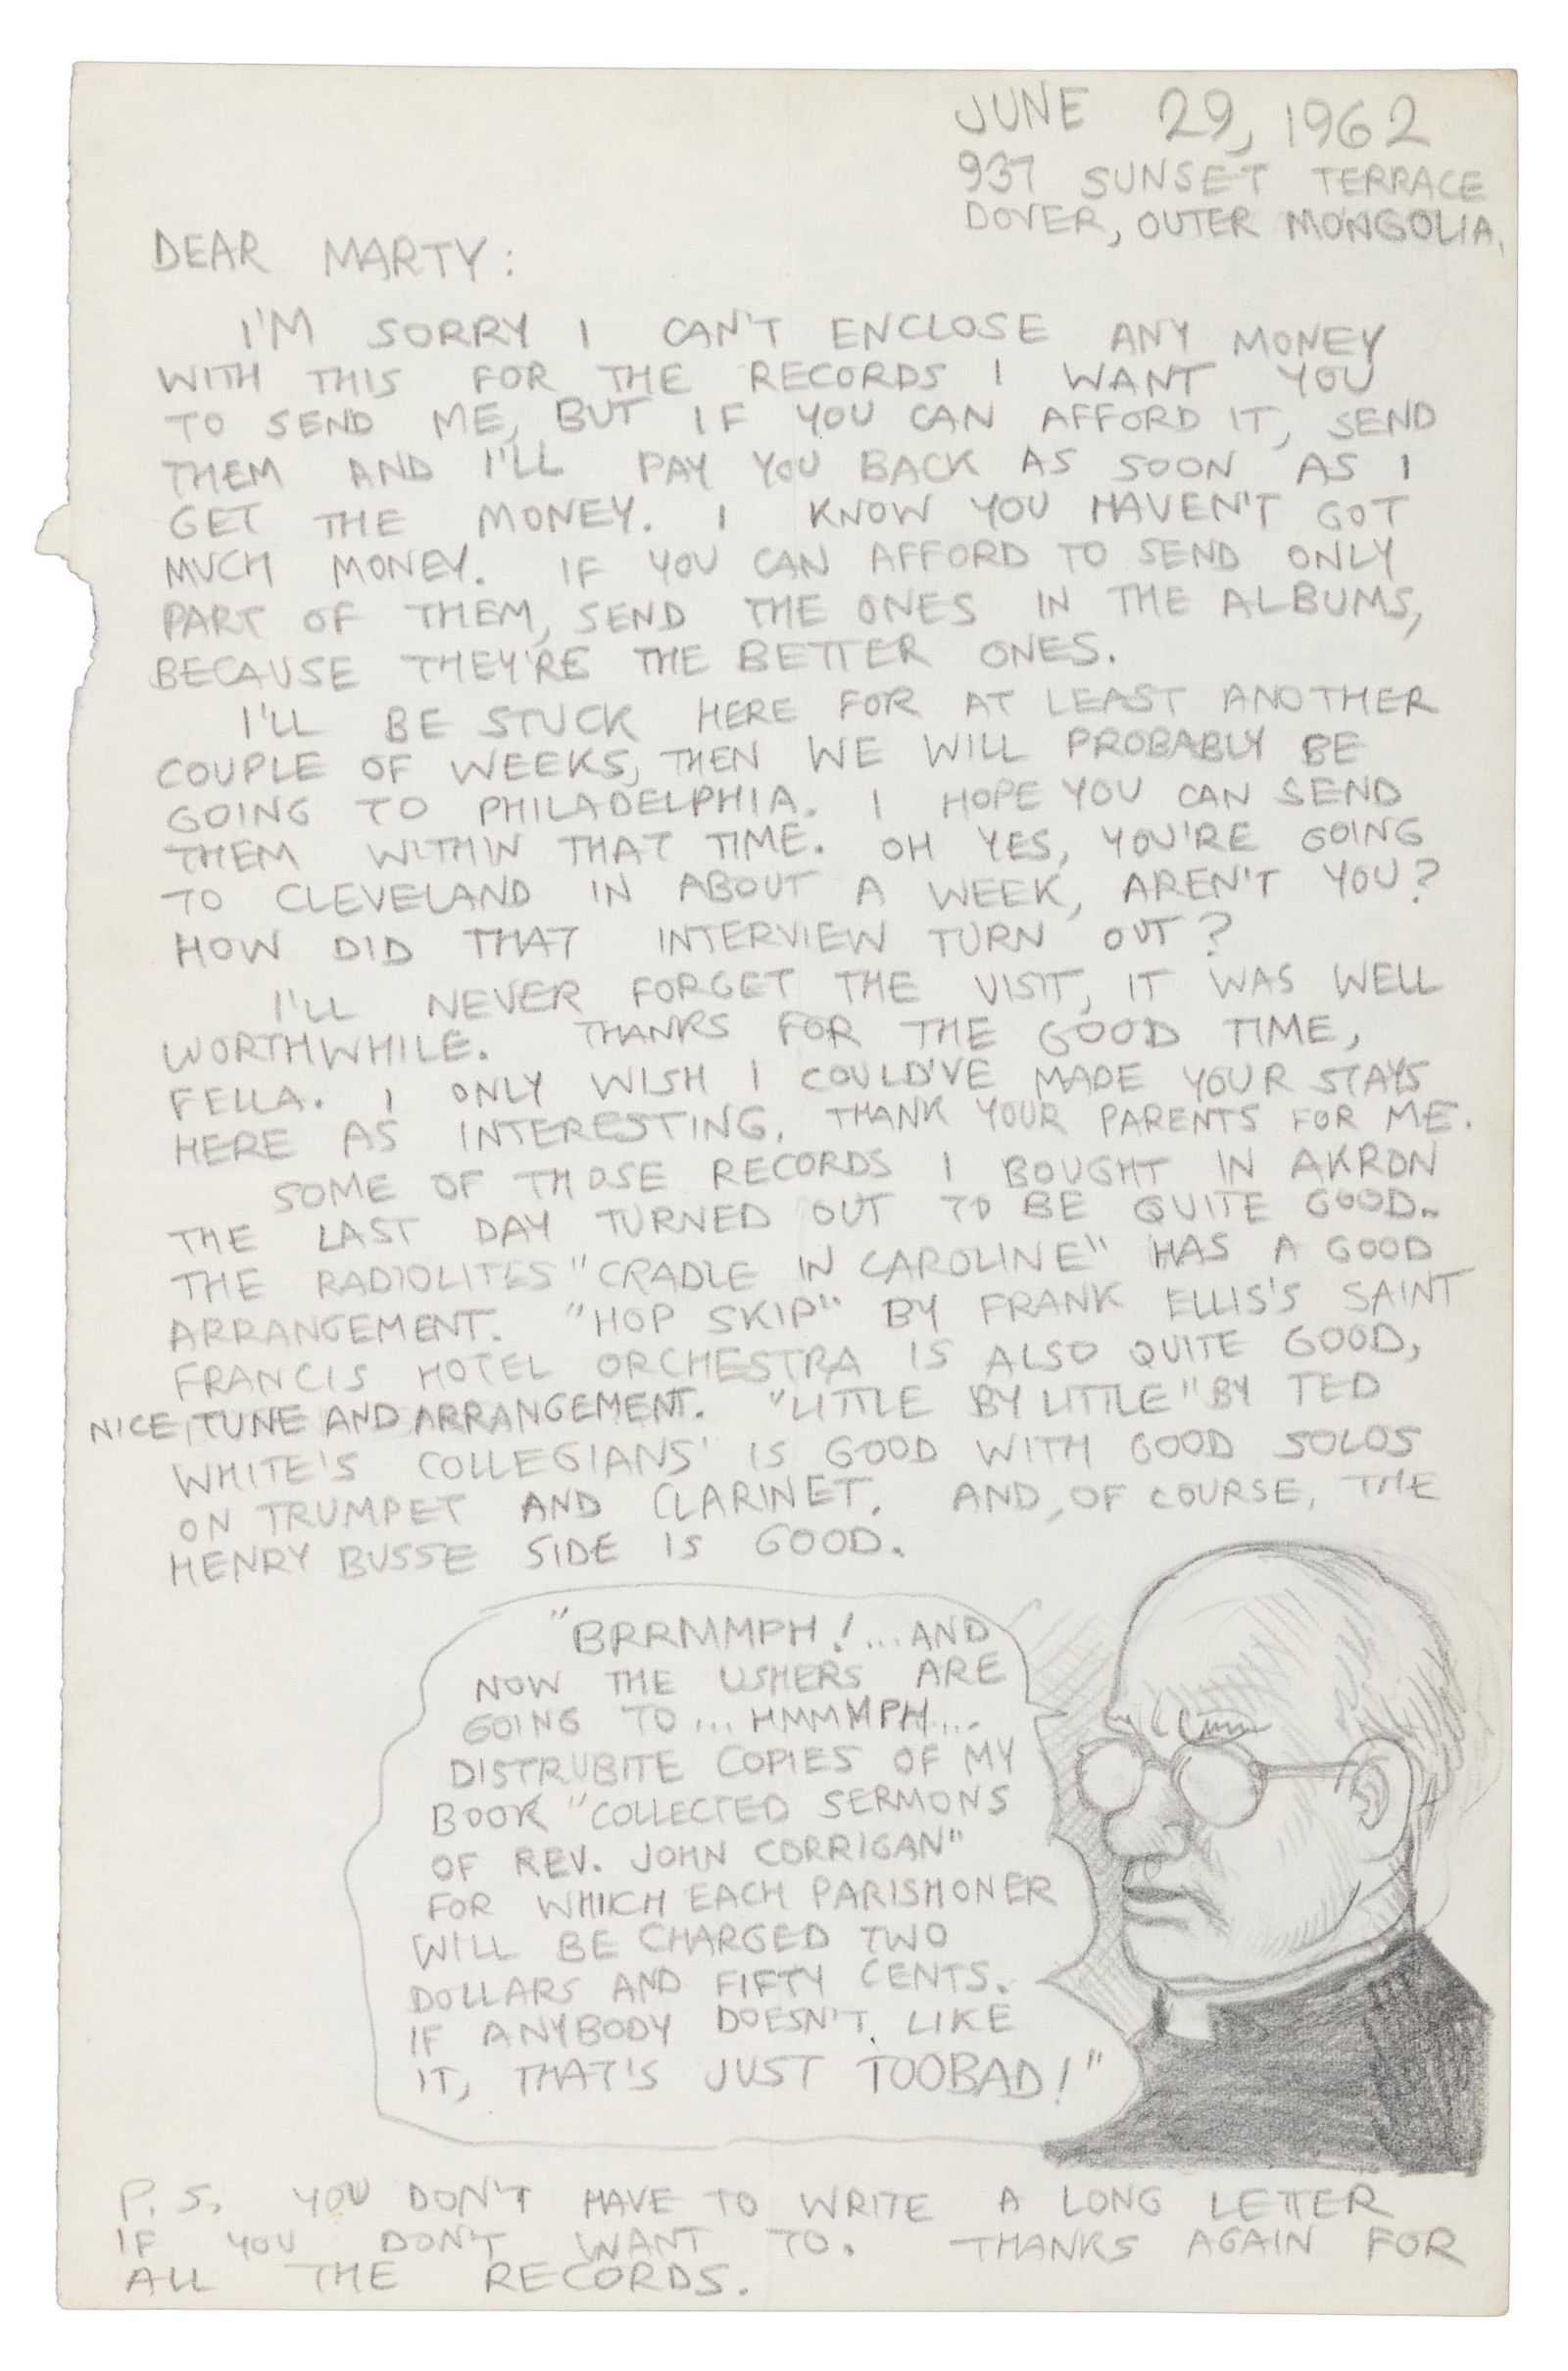 JUNE 29, 1962
937 SUNSET TERRACE
DOVER, OUTER MONGOLIA.
DEAR MARTY:
I'M SORRY I CAN'T ENCLOSE ANY MONEY
WITH THIS FOR THE RECORDS I WANT YOU
TO SEND ME, BUT IF YOU CAN AFFORD IT, SEND
THEM AND I'LL PAY YOU BACK AS SOON AS I
GET THE MONEY. I KNOW YOU HAVEN'T GOT
MUCH MONEY. IF YOU CAN AFFORD TO SEND ONLY
PART OF THEM, SEND THE ONES IN THE ALBUMS,
BECAUSE THEY'RE THE BETTER ONES.
I'LL BE STUCK HERE FOR AT LEAST ANOTHER
COUPLE OF WEEKS, THEN WE WILL PROBABLY BE
GOING TO PHILADELPHIA. I HOPE YOU CAN SEND
THEM WITHIN THAT TIME. OH YES, YOU'RE GOING
TO CLEVELAND IN ABOUT A WEEK, AREN'T YOU?
HOW DID THAT INTERVIEW TURN OUT?
I'LL NEVER FORGET THE VISIT, IT WAS WELL
WORTHWHILE. THANKS FOR THE GOOD TIME,
FELLA. I ONLY WISH I COULD'VE MADE YOUR STAYS
HERE AS INTERESTING. THANK YOUR PARENTS FOR ME.
SOME OF THOSE RECORDS I BOUGHT IN AKRON
THE LAST DAY TURNED OUT TO BE QUITE GOOD.
THE RADIOLITES "CRADLE IN CAROLINE" HAS A GOOD
ARRANGEMENT. "HOP SKIP" BY FRANK ELLIS'S SAINT
FRANCIS HOTEL ORCHESTRA IS ALSO QUITE GOOD,
NICE TUNE AND ARRANGEMENT. "LITTLE BY LITTLE" BY TED
WHITE'S COLLEGIANS' IS GOOD WITH GOOD SOLOS
ON TRUMPET AND CLARINET. AND, OF COURSE, THE
HENRY BUSSE SIDE IS GOOD.
"BRRMMPH! ... AND
NOW THE USHERS ARE
GOING TO ... HMMMPH ...
DISTRUBITE COPIES OF MY
BOOK "COLLECTED SERMONS
OF REV. JOHN CORRIGAN"
FOR WHICH EACH PARISHONER
WILL BE CHARGED TWO
DOLLARS AND FIFTY CENTS.
IF ANYBODY DOESN'T LIKE
IT, THAT'S JUST TOOBAD!"
P.S. YOU DON'T HAVE TO WRITE A LONG LETTER
IF YOU DON'T WANT TO. THANKS AGAIN FOR
ALL THE RECORDS.